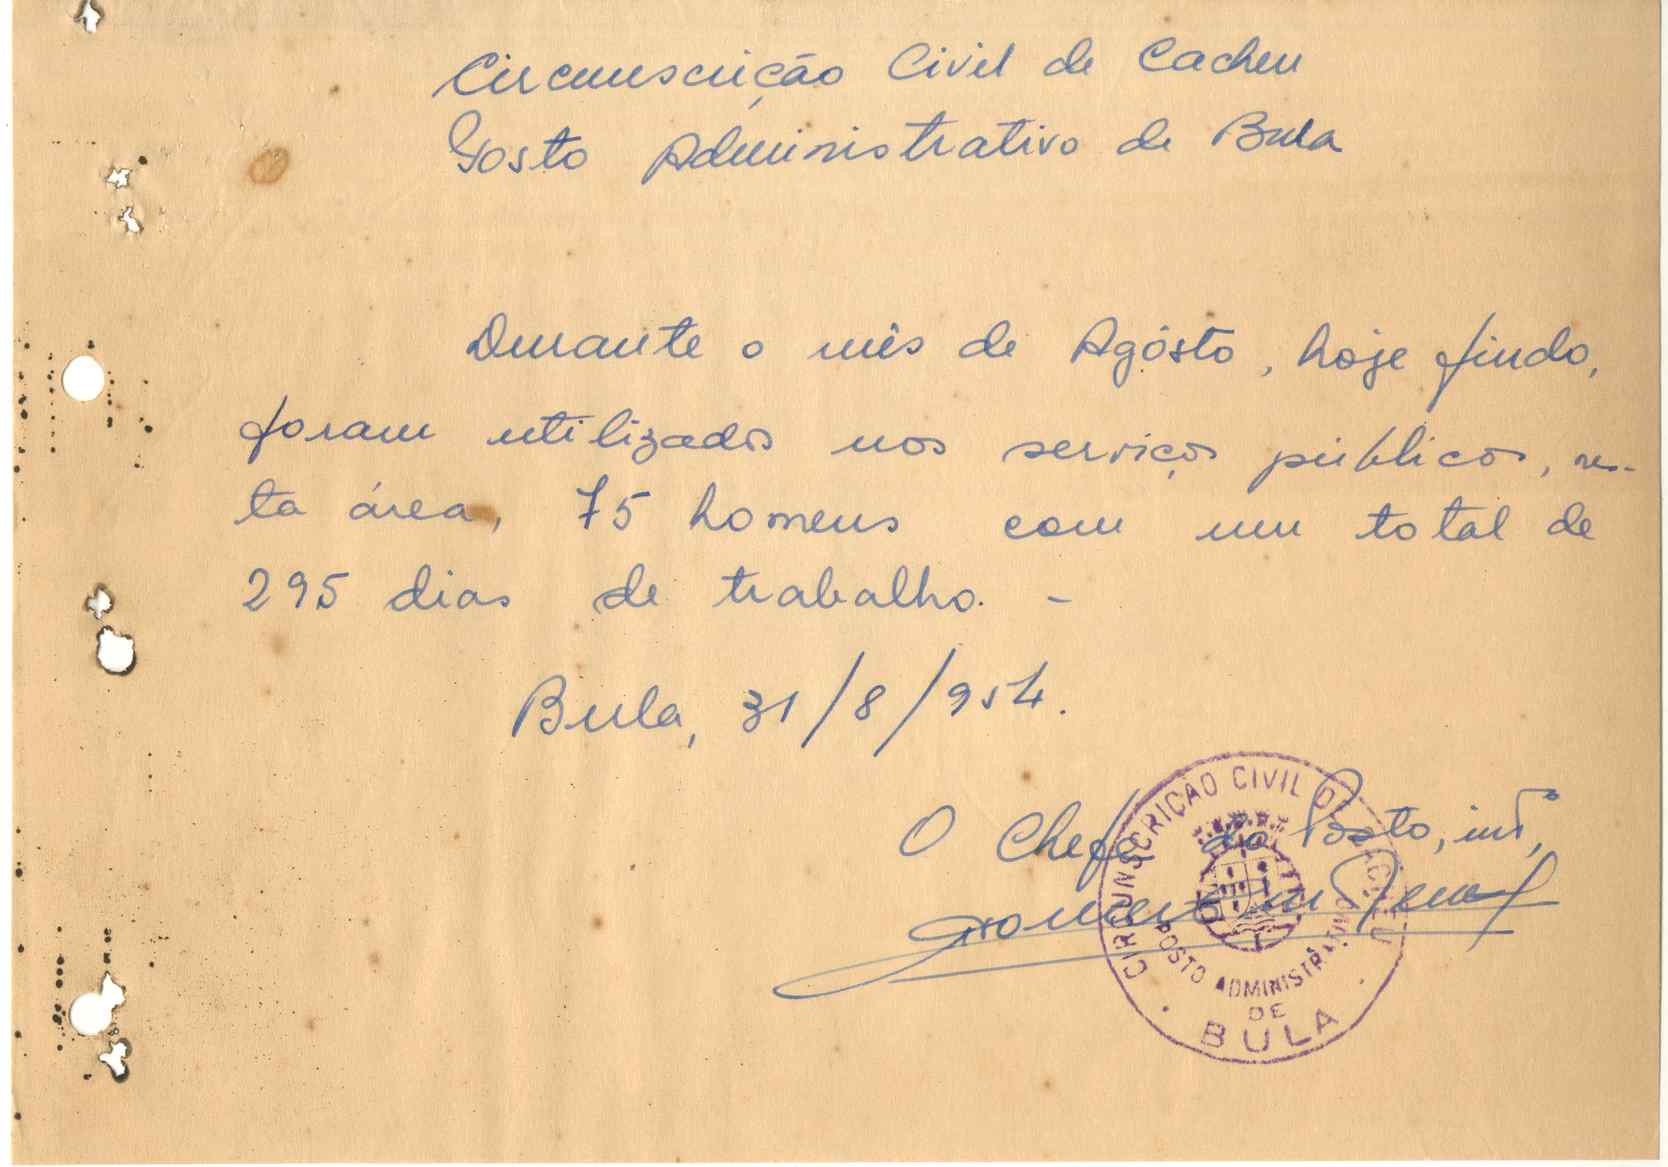 Circunscrição Civil de Cacheu
Posto Administrativo de Bula
Durante o mês de Agôsto, hoje findo,
foram utilizados nos serviços públicos, nes-
ta área, 75 homens com um total de
295 dias de trabalho. -
Bula, 31/8/954.
O Chefe do Posto, intº,
CIRCUNSCRIÇÃO CIVIL DE CACHEU
POSTO ADMINISTRATIVO
DE
BULA